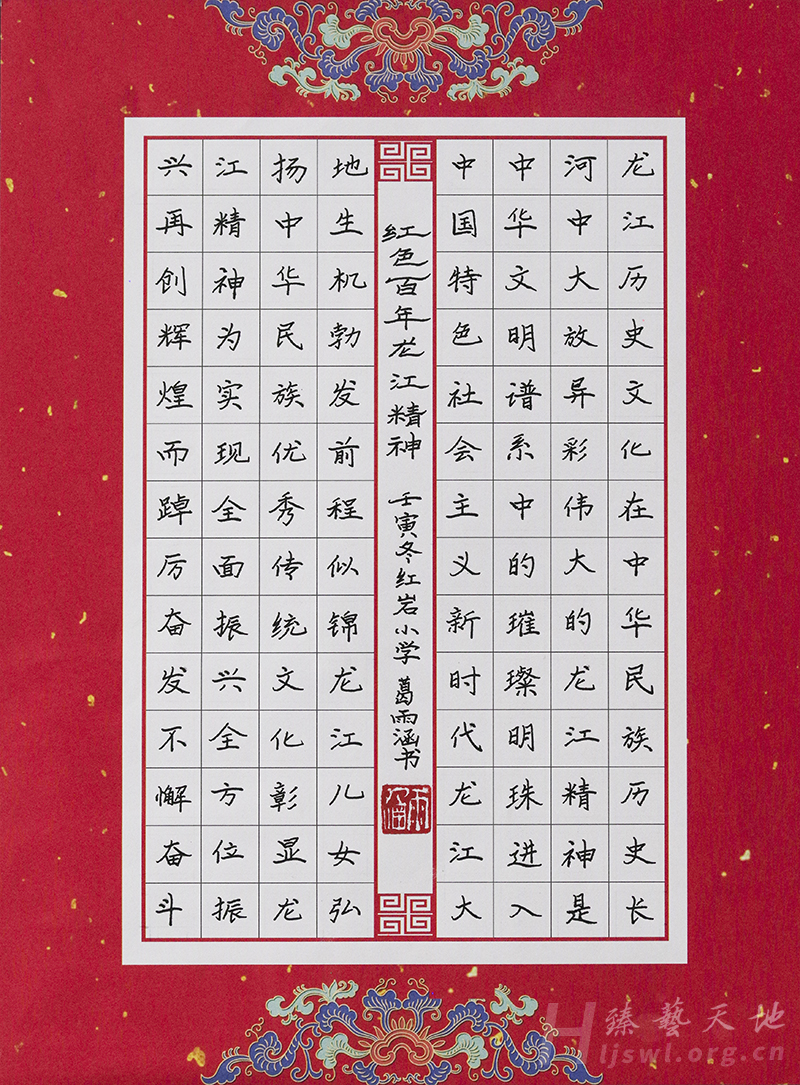 龙江历史文化在中华民族历史长
河中大放异彩伟大的龙江精神是
中华文明谱系中的璀璨明珠进入
中国特色社会主义新时代龙江大
红色百年龙江精神 壬寅冬红岩小学 葛雨涵书
雨涵
地生机勃发前程似锦龙江儿女弘
扬中华民族优秀传统文化彰显龙
江精神为实现全面振兴全方位振
兴再创辉煌而踔厉奋发不懈奋斗
臻艺天地
Hljswl.org.cn